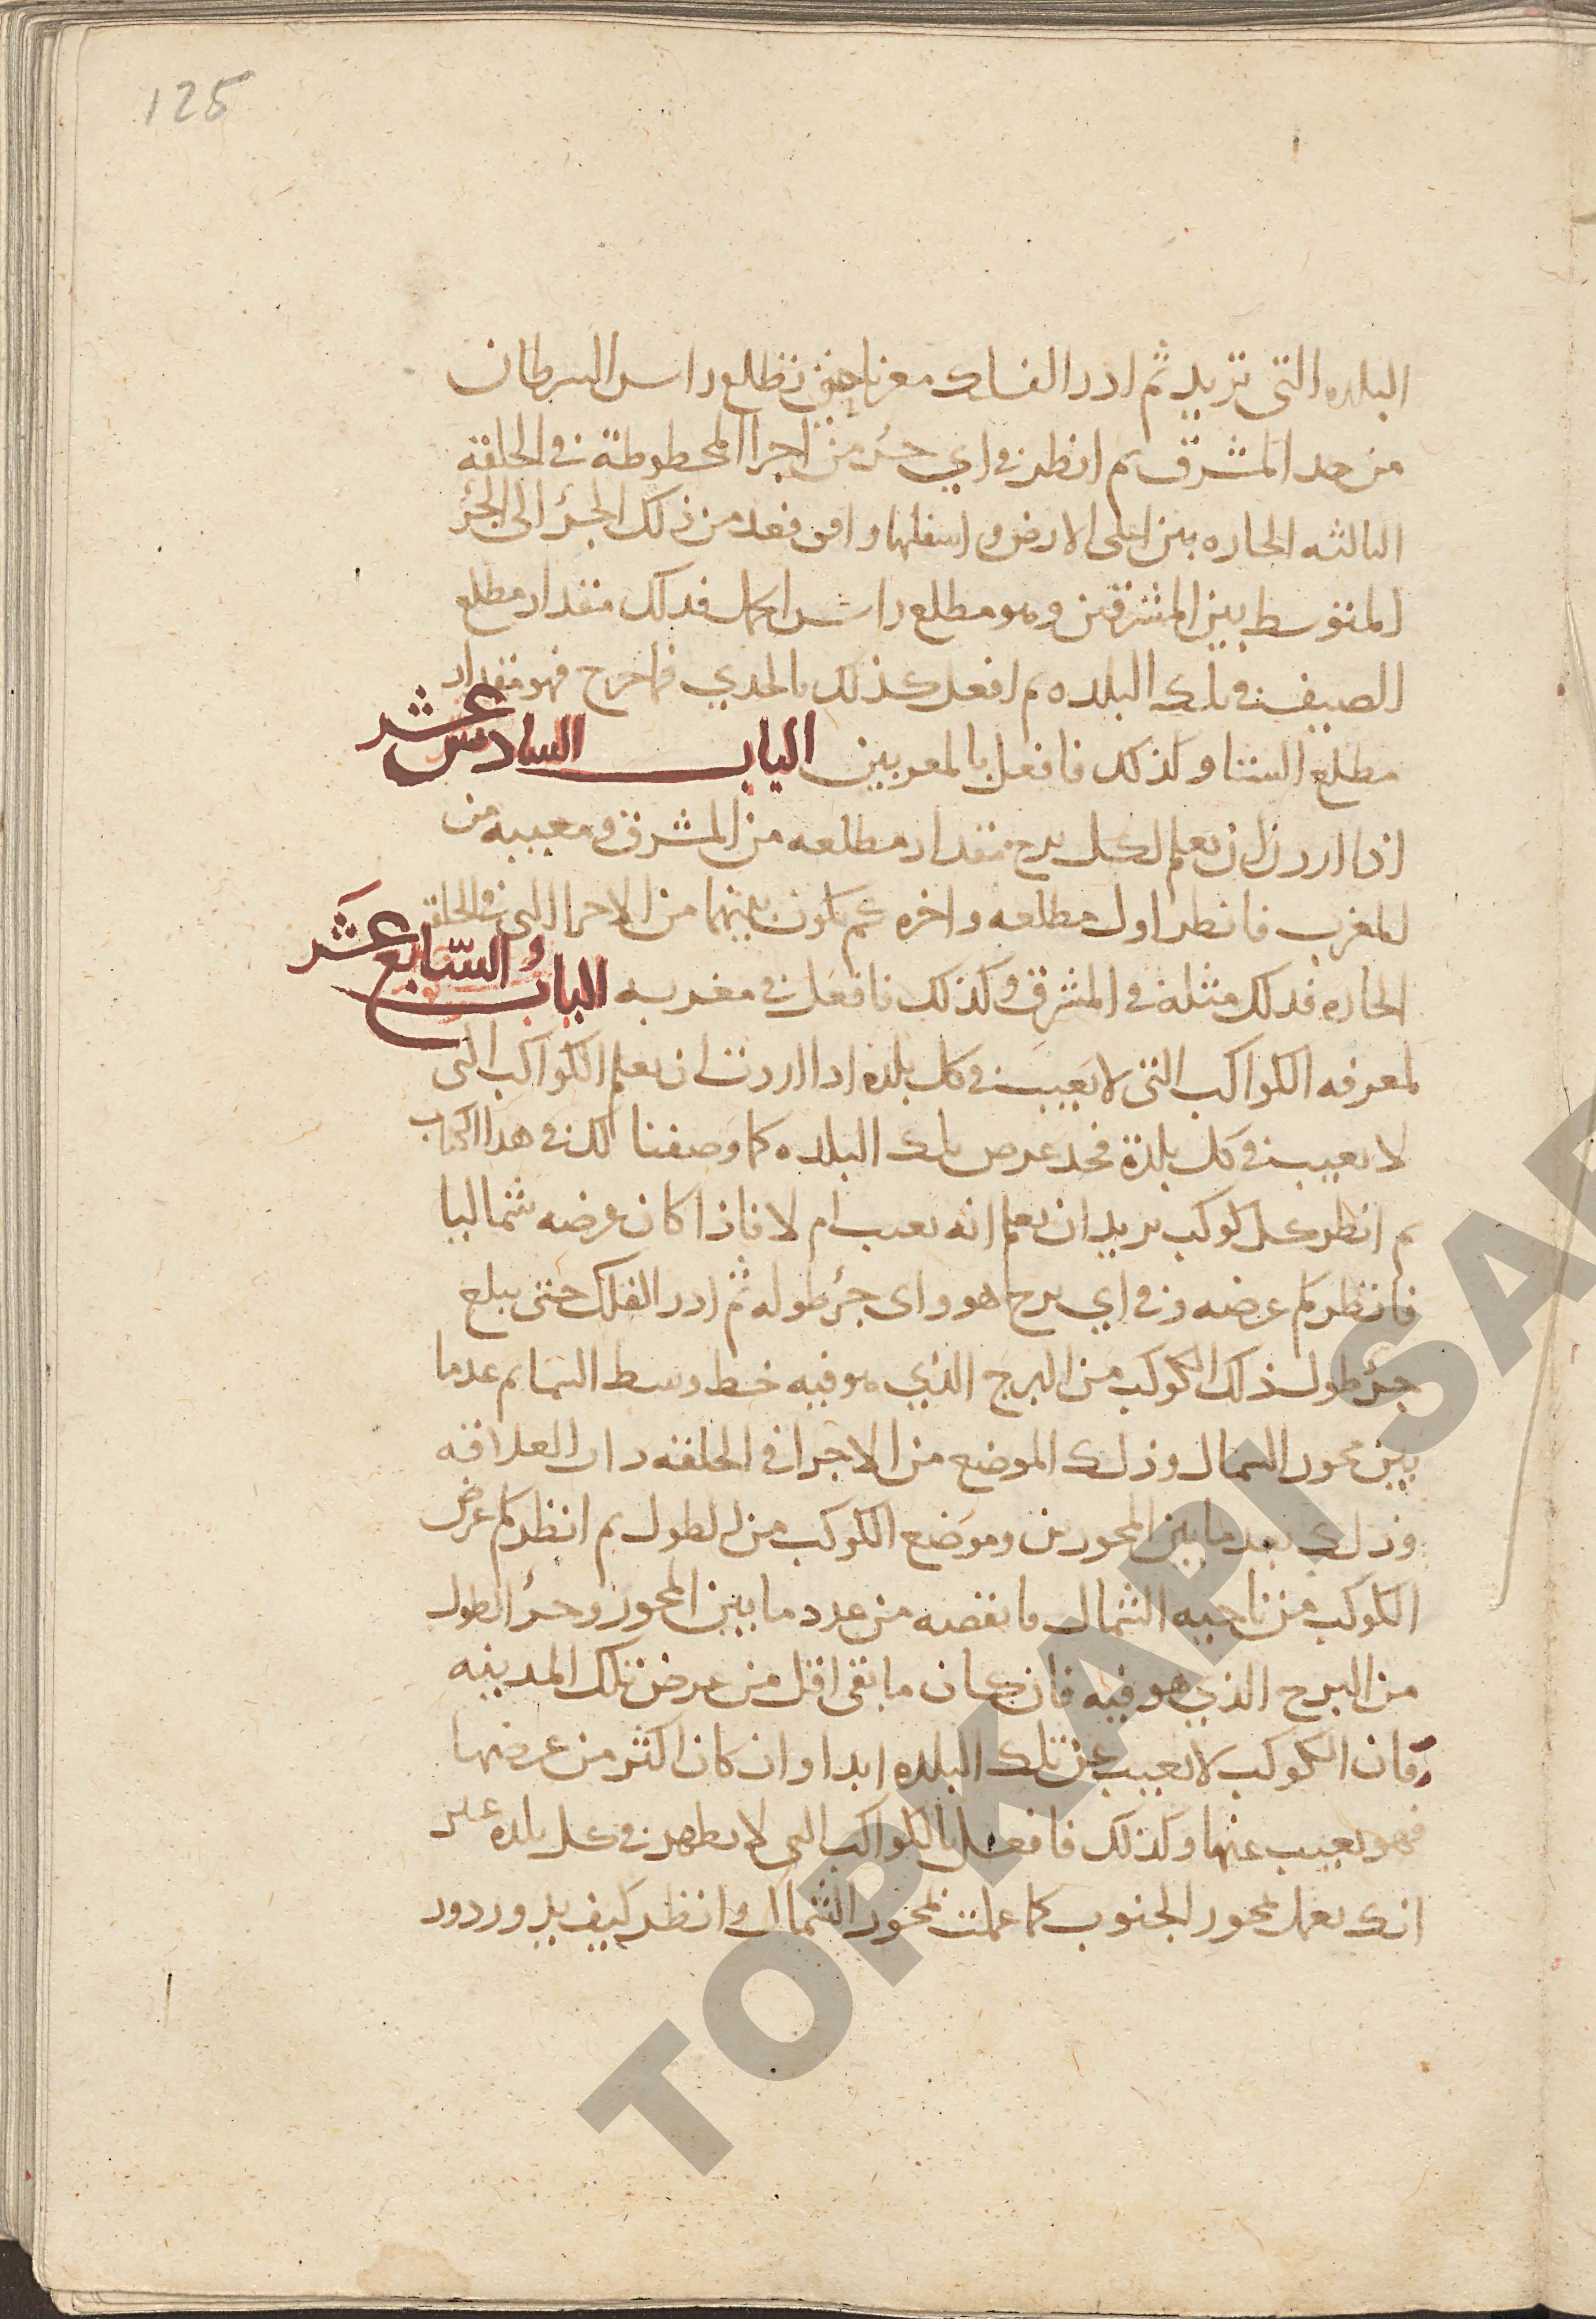 125
البلده التى تريد ثم ادر الفلك معربا حتى تطلع راس السرطان
من حد المشرق ثم انظر فى اي جزء من اجزا المخطوطة فى الحلقه
الثالثه الحازه بين اعلى الارض و اسفلها وافق فعد من ذلك الجزء الى الجزء
المتوسط بين المشرقين وهو مطلع راس الحمل فذلك مقدار مطلع
الصيف فى تلك البلده ثم افعل كذلك بالجدي فما خرج فهو مقدار
مطلع الشتا وكذلك فافعل بالمغربين الباب السادس عشر
اذا اردت ان تعلم لكل برج مقدار مطلعه من المشرق ومغيبه من
المغرب فانظر اول مطلعه واخره كم يكون بينهما من الاجزا التى فى الحلقه
الحازه فذلك مثله فى المشرق وكذلك فافعل فى مغربه الباب السابع عشر
لمعرفه الكواكب التى لا تغيب فى كل بلده اذا اردت ان تعلم الكواكب التى
لا تغيب فى كل بلدة فخذ عرض تلك البلده كما وصفنا لك فى هذا الكتاب
ثم انظر كل كوكب تريد ان تعلم انه تغيب ام لا فاذا كان عرضه شماليا
فانظر كم عرضه وفى اي برج هو واى جزء طوله ثم ادر الفلك حتى يبلغ
جزء طول ذلك الكوكب من البرج الذي هو فيه خط وسط السما ثم عد ما
بين محور الشمال وذلك الموضع من الاجزا فى الحلقه ذات العلاقه
وذلك بعد ما بين المحورين وموضع الكوكب من الطول ثم انظر كم عرض
الكوكب من ناحيه الشمال فانقصه من عدد ما بين المحور وجزء الطول
من البرج الذي هو فيه فان كان ما بقى اقل من عرض تلك المدينه
فان الكوكب لا يغيب عن تلك البلده ابدا وان كان اكثر من عرضها
فهو يغيب عنها وكذلك فافعل بالكواكب التى لا تظهر فى كل بلده غير
انك تعمل بمحور الجنوب كما عملت بمحور الشمال وانظر كيف يدور دور
TOPKAPI SA